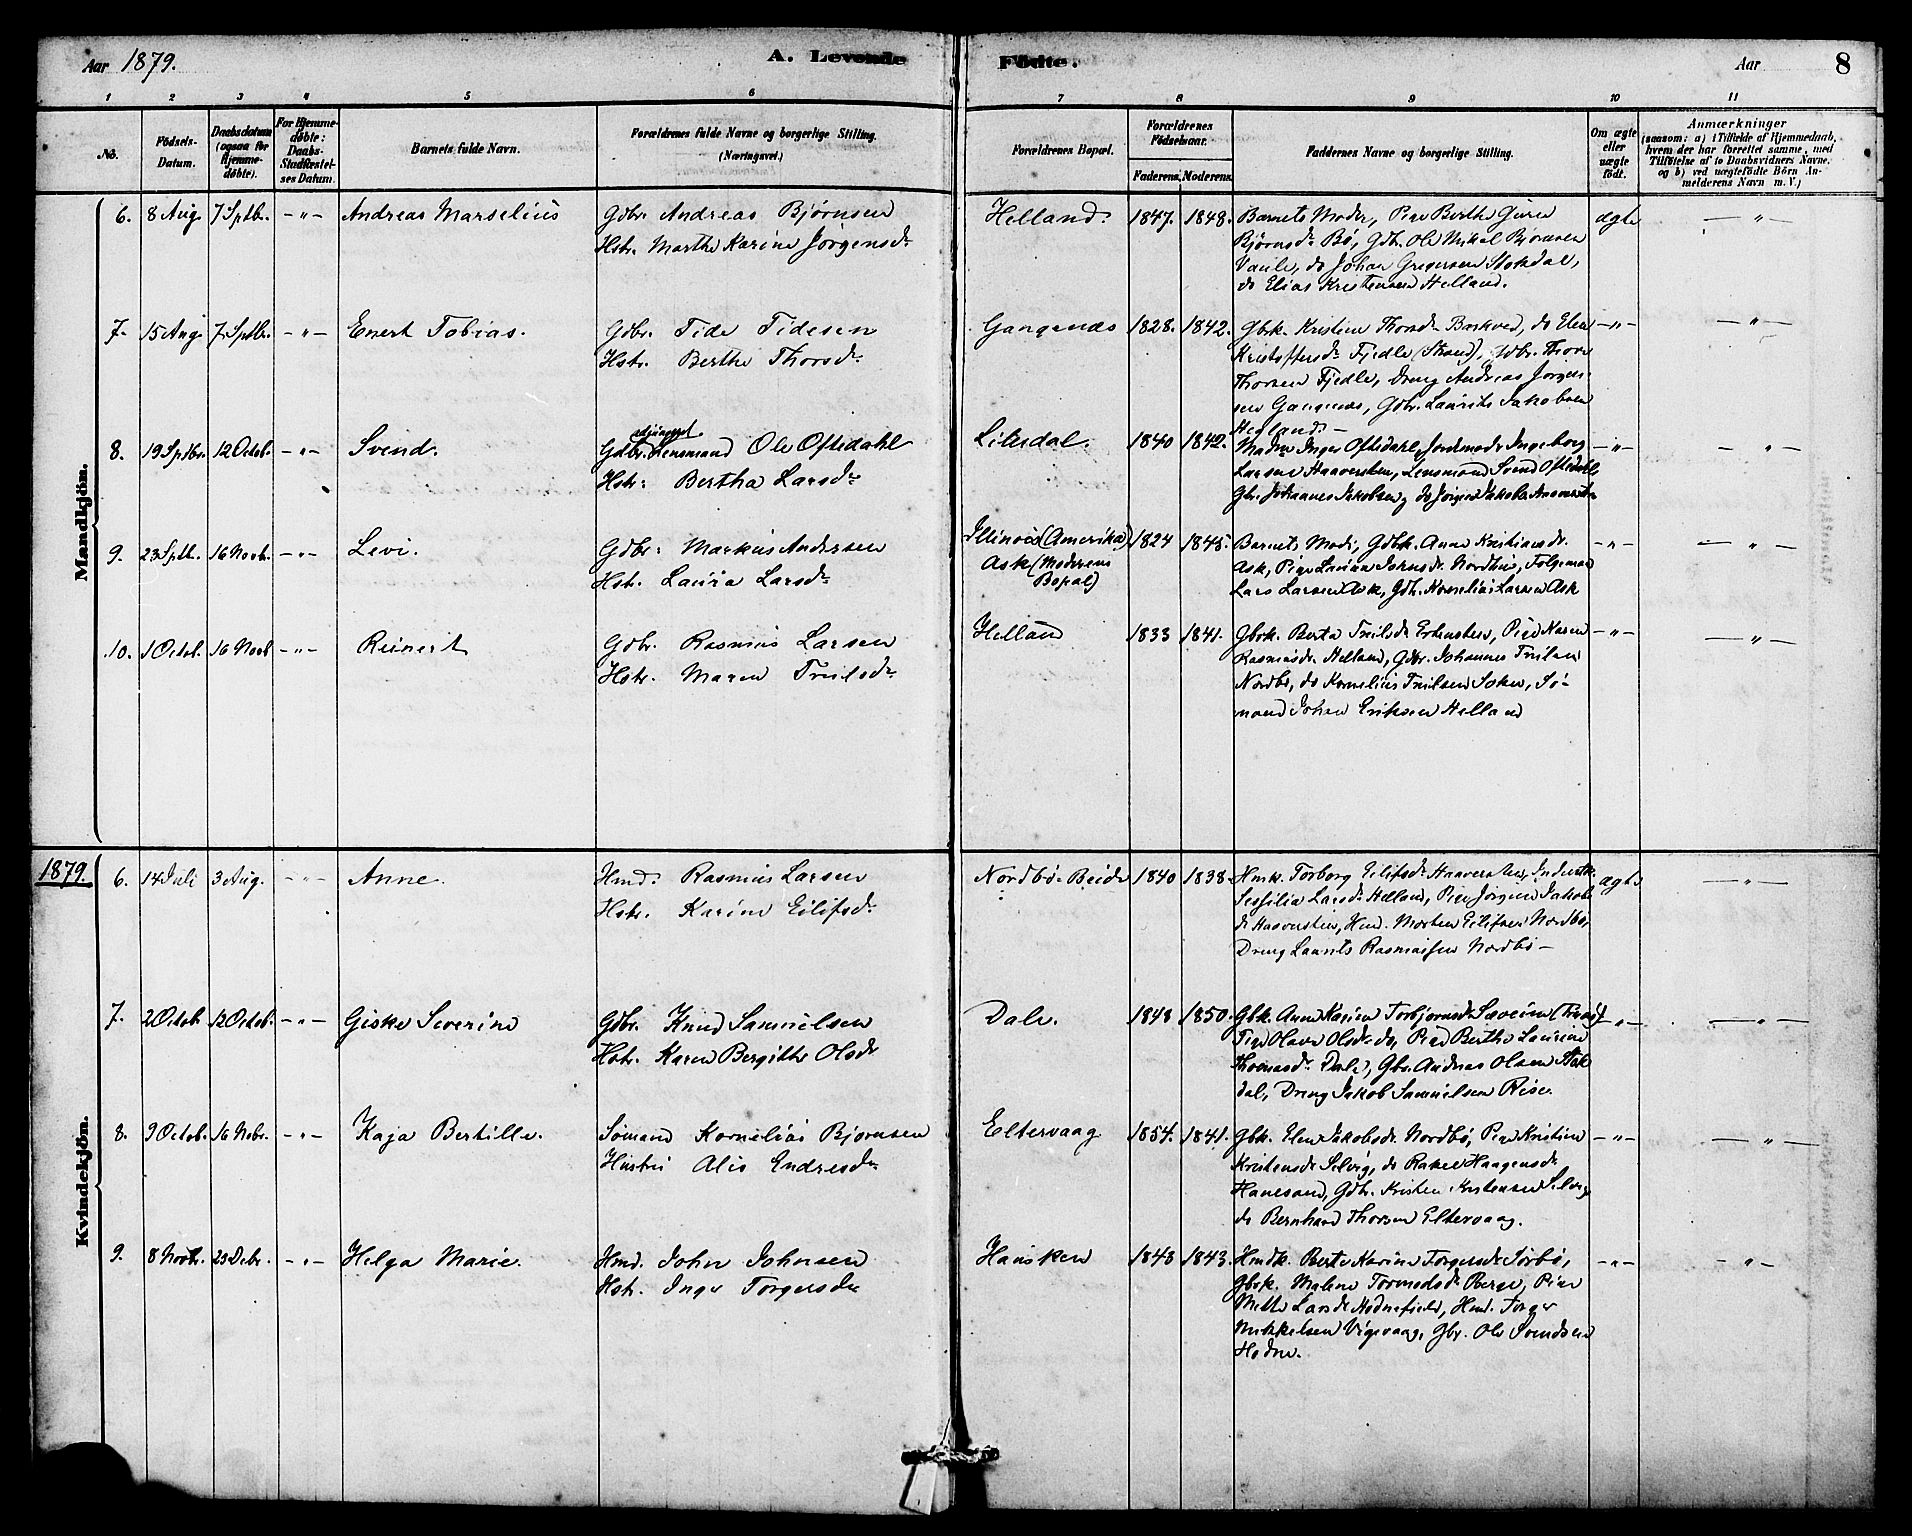 Aar 1879.
A. Levende Födte.
Aar
8
1 2 3 4 5 6 7 8 9 10 11
No.
Födsels-Datum.
Daabsdatum (ogsaa for Hjemmedöbte).
For Hjemmedöbte: Daabs-Stadfæstelses Datum.
Barnets fulde Navn.
Forældrenes fulde Navne og borgerlige Stilling.
(Næringsvei.)
Forældrenes Bopæl.
Forældrenes Födselsaar.
Faderens. Moderens.
Faddernes Navne og borgerlige Stilling.
Om ægte eller uægte födt.
Anmærkninger
(saasom: a) i Tilfælde af Hjemmedaab, hvem der har forrettet samme, med Tilföielse af to Daabsvidners Navne, og b) ved uægtefödte Börn Anmelderens Navn m. V.)
Mandkjön.
6. 8 Aug 7 Sptbr. -"- Andreas Marselius
Gdbr. Andreas Bjørnsen
Hstr. Marthe Karine Jørgensdr
Helland. 1847. 1848.
Barnets Moder, Pige Berthe Gurine
Bjørnsdr Bö, Gdbr. Ole Mikal Bjørnsen
Vaule, do Johan Gregersen Stokdal,
do Elias Kristensen Helland.
ægte — " —
7. 15 Aug 7 Sptbr. -"- Enert Tobias.
Gdbr. Tide Tidesen
Hstr. Berthe Thorsdr
Gangenæs 1828. 1842.
Gbrk. Kristien Thorsdr Barkved, do Elen
Kristoffersdr Fjedle (Strand), Gdbr. Thore
Thorsen Fjedle, Dreng Andreas Jørgen-
sen Gangenæs, Gdbr. Laurits Jakobsen
Hegland. —
-"- — " —
8. 19 Sptbr. 12 Octob. -"- Svend.
adjungeret
Gdbr. Lensmand Ole Oftedahl
Hstr: Bertha Larsdr
Lilesdal. 1840 1842.
Madm Inger Oftedahl, Jordmoder Ingeborg
Larsen Haaverstein, Lensmand Svend Oftedahl
Gbr. Johannes Jakobsen, do Jørgen Jakobs
-"- — " —
9. 23 Sptb. 16 Novb. -"- Levi.
Gdbr: Markus Andersen
Hstr. Laura Larsdr
Illinois (Amerika)
Ask (Moderens
Bopæl)
1824 1845.
Barnets Moder, Gdbk. Anne Kristiansdr.
Ask, Pige Laura Johnsdr. Nordbø, Følgemand
Lars Larsen Ask, Gdb. Kornelius Larsen Ask
-"- — " —
10. 1 Octob. 16 Novb -"- Reinert
Gdbr. Rasmus Larsen
Hstr. Maren Truilsdr
Helland 1833 1841.
Gbrk. Berta Truilsdr Erkenstein, Pige Karen
Rasmusdr. Helland, Gdbr. Johannes Truilsen
Nordbø, do Kornelius Truilsen Soken, Sø-
mand Johan Eriksen Helland
-"- — " —
1879.
Kvindekjön.
6. 14 Juli 3 Aug. -"- Anne.
Hmd. Rasmus Larsen
Hstr. Karine Eilifsdr
Nordbø-Beide 1840 1838.
Hmk. Torborg Eilifsdr Haaverstein, Inderstk.
Sessilia Larsdr Helland, Pige Jørgine Jakobs
dr Haaverstein, Hmd. Morten Eilifsen Nordbø,
Dreng Laurits Rasmussen Nordbø —
ægte — " —
7. 2 Octob 12 Octob. -"- Giske Severine
Gdbr. Knud Samuelsen
Hstr. Karen Bergitte Olsdr
Dale. 1848 1850.
Gbk. Anne Karine Torbjørnsdr Søveim
Pige Olava Olsdr do, Pige Berthe Laurine
Thomasdr. Dale, Gbr. Andreas Olsen Stok
dal, Dreng Jakob Samuelsen Rise.
-"- — " —
8. 9 Octob. 16 Nobr. -"- Kaja Bertille.
Sømand Kornelius Bjørnsen
Hustru Alis Endresdr
Eltervaag 1854. 1841.
Gbk. Elen Jakobsdr. Nordbø, Pige Kristine
Kristensdr Selvig, do Rakel Haagensdr
Hanesand, Gdb. Kristen Kristensen Selvig
do Bernhard Thorsen Eltervaag.
-"- — " —
9. 8 Novbr. 23 Debr. -"- Helga Marie.
Hmd. John Johnsen
Hstr. Inger Torgersdr
Hausken 1843 1843.
Hmdk. Berte Karine Torgersdr Sørbø,
Gbrk. Malene Tormodsdr Berge, Pige
Mette Larsdr Hodnefjeld, Hmd. Torger
Mikkelsen Vigevaag, Gbr. Ole Svendsen
Hodne.
-"- — " —